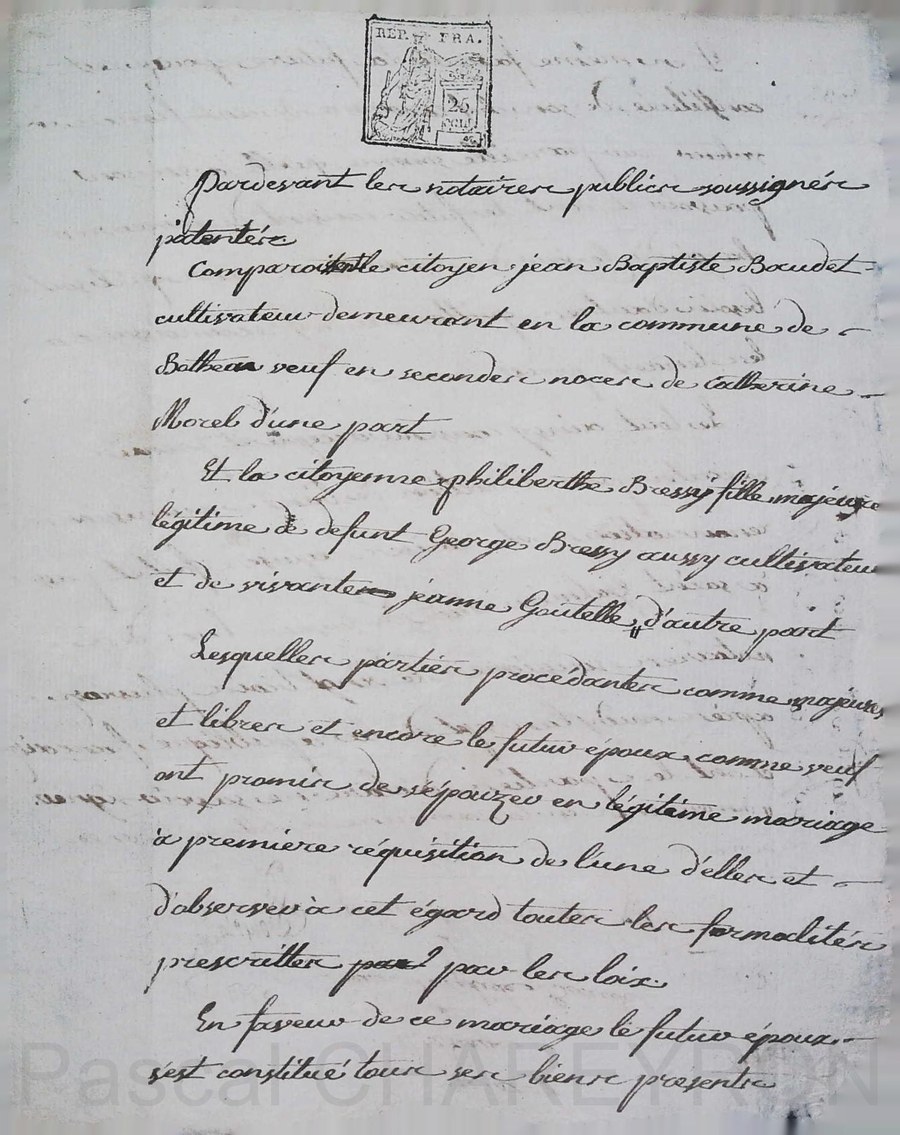 REP. FRA.
25
Pardevant les notaires publics soussignés
patentés
Comparoit le citoyen jean Baptiste Baudet
cultivateur demeurant en la commune de
veuf en secondes noces de Catherine
Morel d'une part
Et la citoyenne philiberthe Bressy fille majeure
légitime de defunt George Bressy aussy cultivateur
et de vivante jeanne Goutelle, d'autre part
Lesquelles parties procédantes comme majeures
et libres et encore le futur époux comme veuf
ont promis de s'épouzer en légitime mariage
à premiere réquisition de l'une d'elles et
d'observer à cet égard toutes les formalités
prescrittes par les loix.
En faveur de ce mariage le futur époux
s'est constitué tous ses biens presents
Pascal CHAREYRON